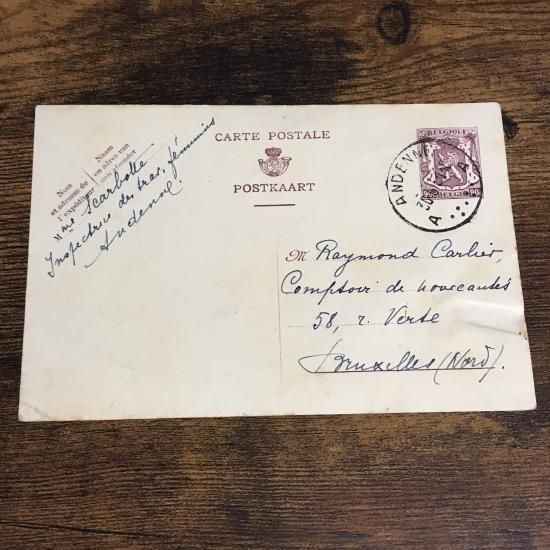 Nom
et adresse de
l'expéditeur
Naam
en adres van
den afzender
M
me Scarbotte
Inspectrice des trav. féminins
Andenne
CARTE POSTALE
POSTKAART
BELGIQUE
90
90
ANDENNE
A
M Raymond Carlier,
Comptoir de nouveautés
58, r. Verte
Bruxelles (Nord).